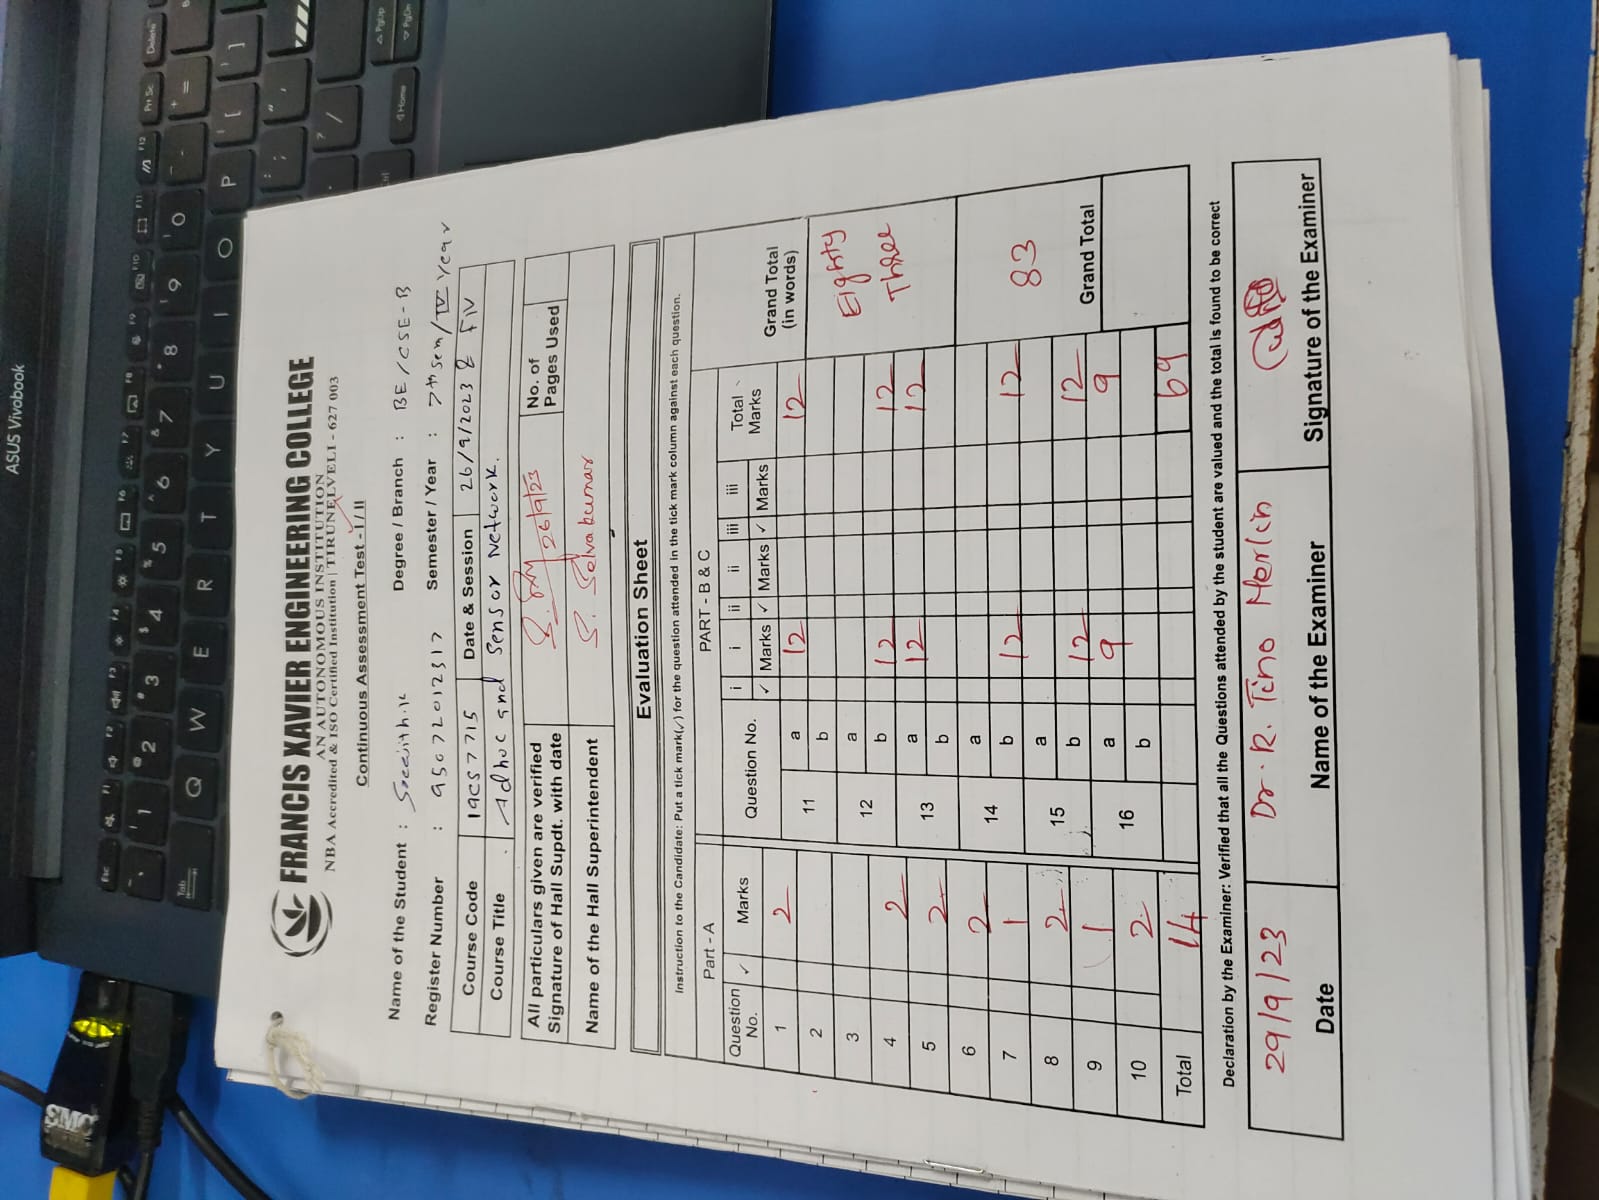 ASUS Vivobook
SIMO
Esc F1 F2 F3 F4 F5 F6 F7 F8 F9 F10 F11 F12 Prt Sc Delete
1 2 3 4 5 6 7 8 9 0 - =
Tab Q W E R T Y U I O P [ ]
; "
? /
Home PgUp
PgDn
FRANCIS XAVIER ENGINEERING COLLEGE
AN AUTONOMOUS INSTITUTION
NBA Accredited & ISO Certified Institution | TIRUNELVELI - 627 003
Continuous Assessment Test - I / II
Name of the Student : Sreejith.K Degree / Branch : BE/CSE-B
Register Number : 95072012317 Semester / Year : 7th sem/IV Year
Course Code 19CS7715 Date & Session 26/9/2023 & FN
Course Title Adhoc and Sensor Network.
All particulars given are verified
Signature of Hall Supdt. with date 26/9/23 No. of
Pages Used
Name of the Hall Superintendent S. Selvakumar
Evaluation Sheet
Instruction to the Candidate: Put a tick mark(✓) for the question attended in the tick mark column against each question.
Part - A PART - B & C
Question No. ✓ Marks Question No. i i ii ii iii iii Total Marks Grand Total (in words)
✓ Marks ✓ Marks ✓ Marks
1 2 11 a 12 12
2 b
3 12 a Eighty
4 2 b 12 12 Three
5 2 13 a 12 12
b
6 2 14 a
7 1 b 12 12 83
8 2 15 a
b 12 12 Grand Total
9 1 16 a 9 9
10 2 b
Total 14 69
Declaration by the Examiner: Verified that all the Questions attended by the student are valued and the total is found to be correct
29/9/23 Dr. R. Tino Merlin
Date Name of the Examiner Signature of the Examiner